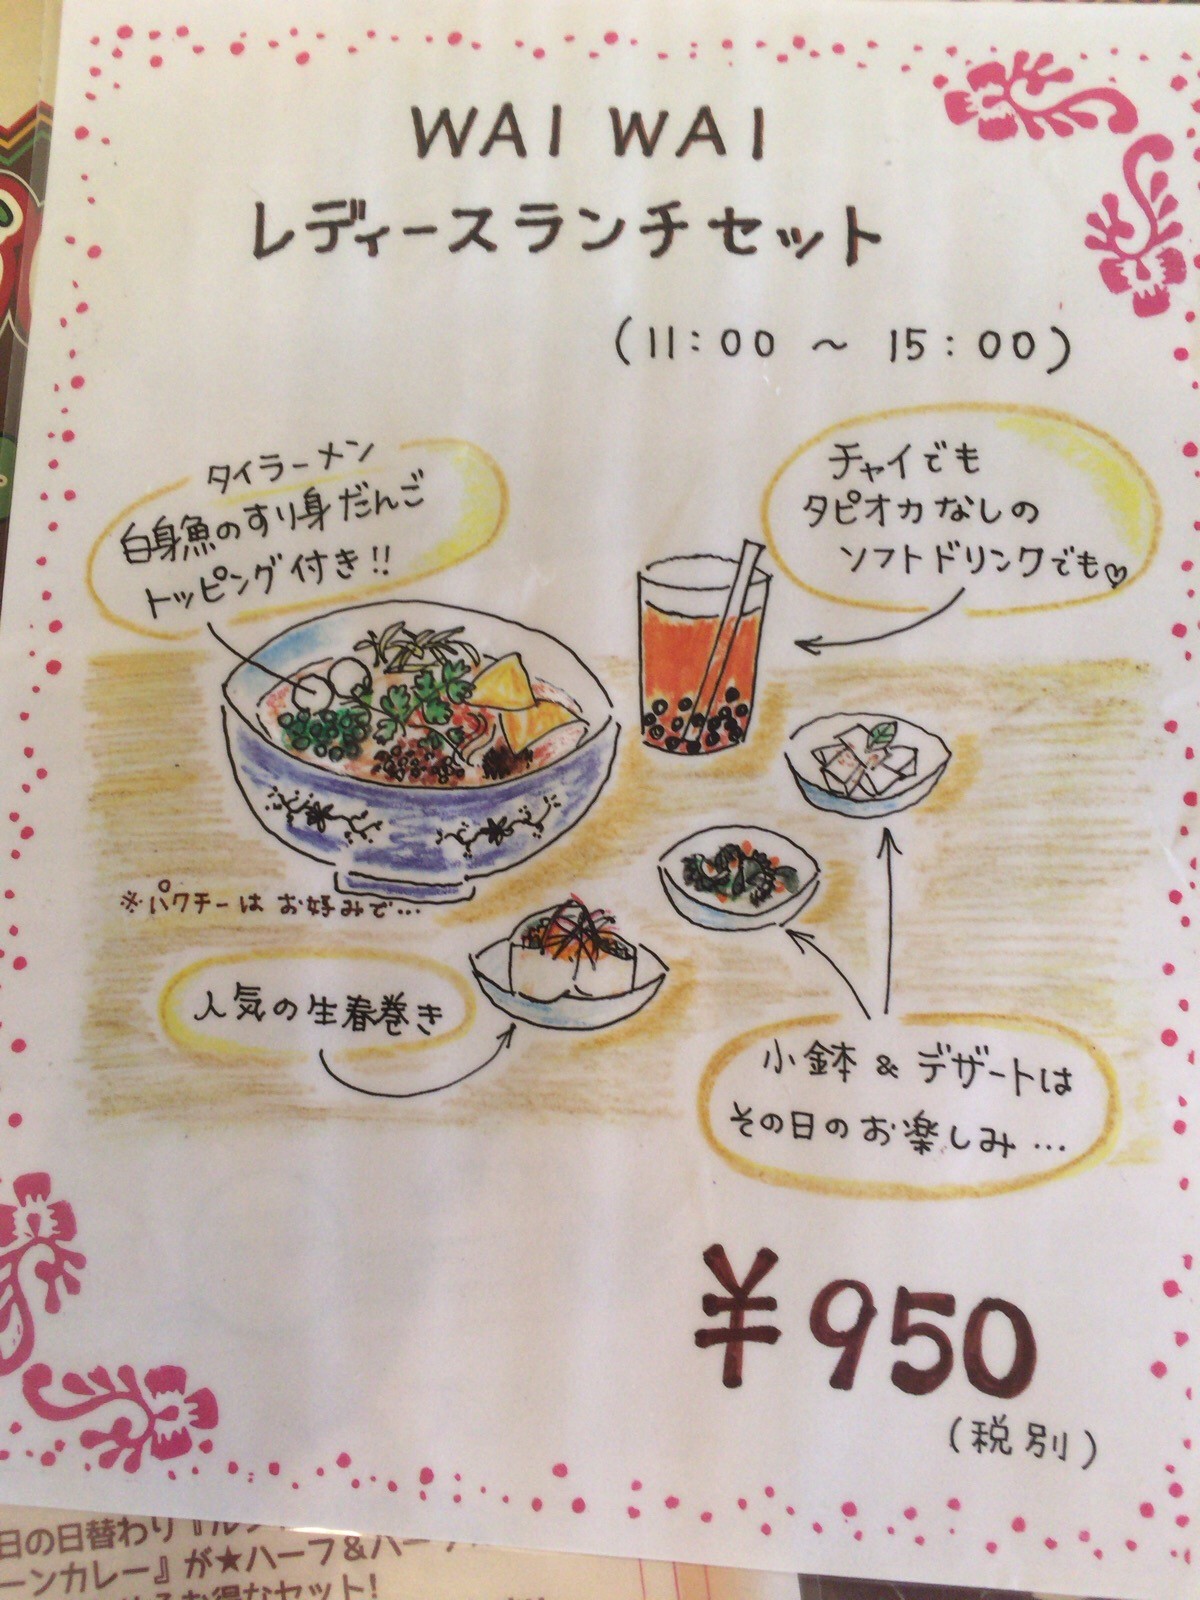 WAI WAI
レディースランチセット
(11:00 ～ 15:00)
タイラーメン
白身魚のすり身だんご
トッピング付き!!
チャイでも
タピオカなしの
ソフトドリンクでも♡
※パクチーはお好みで…
人気の生春巻き
小鉢 & デザートは
その日のお楽しみ…
￥950
(税別)
日の日替わり『ル
ーンカレー』が★ハーフ&ハー
お得なセット!